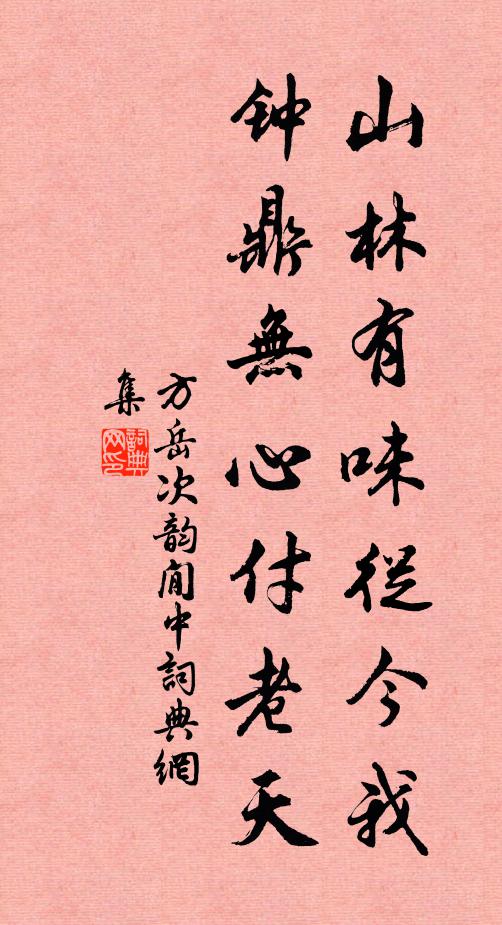 山林有味從今我
钟鼎無心付老天
方岳次韵閒中詞典網
集
詞典
网印